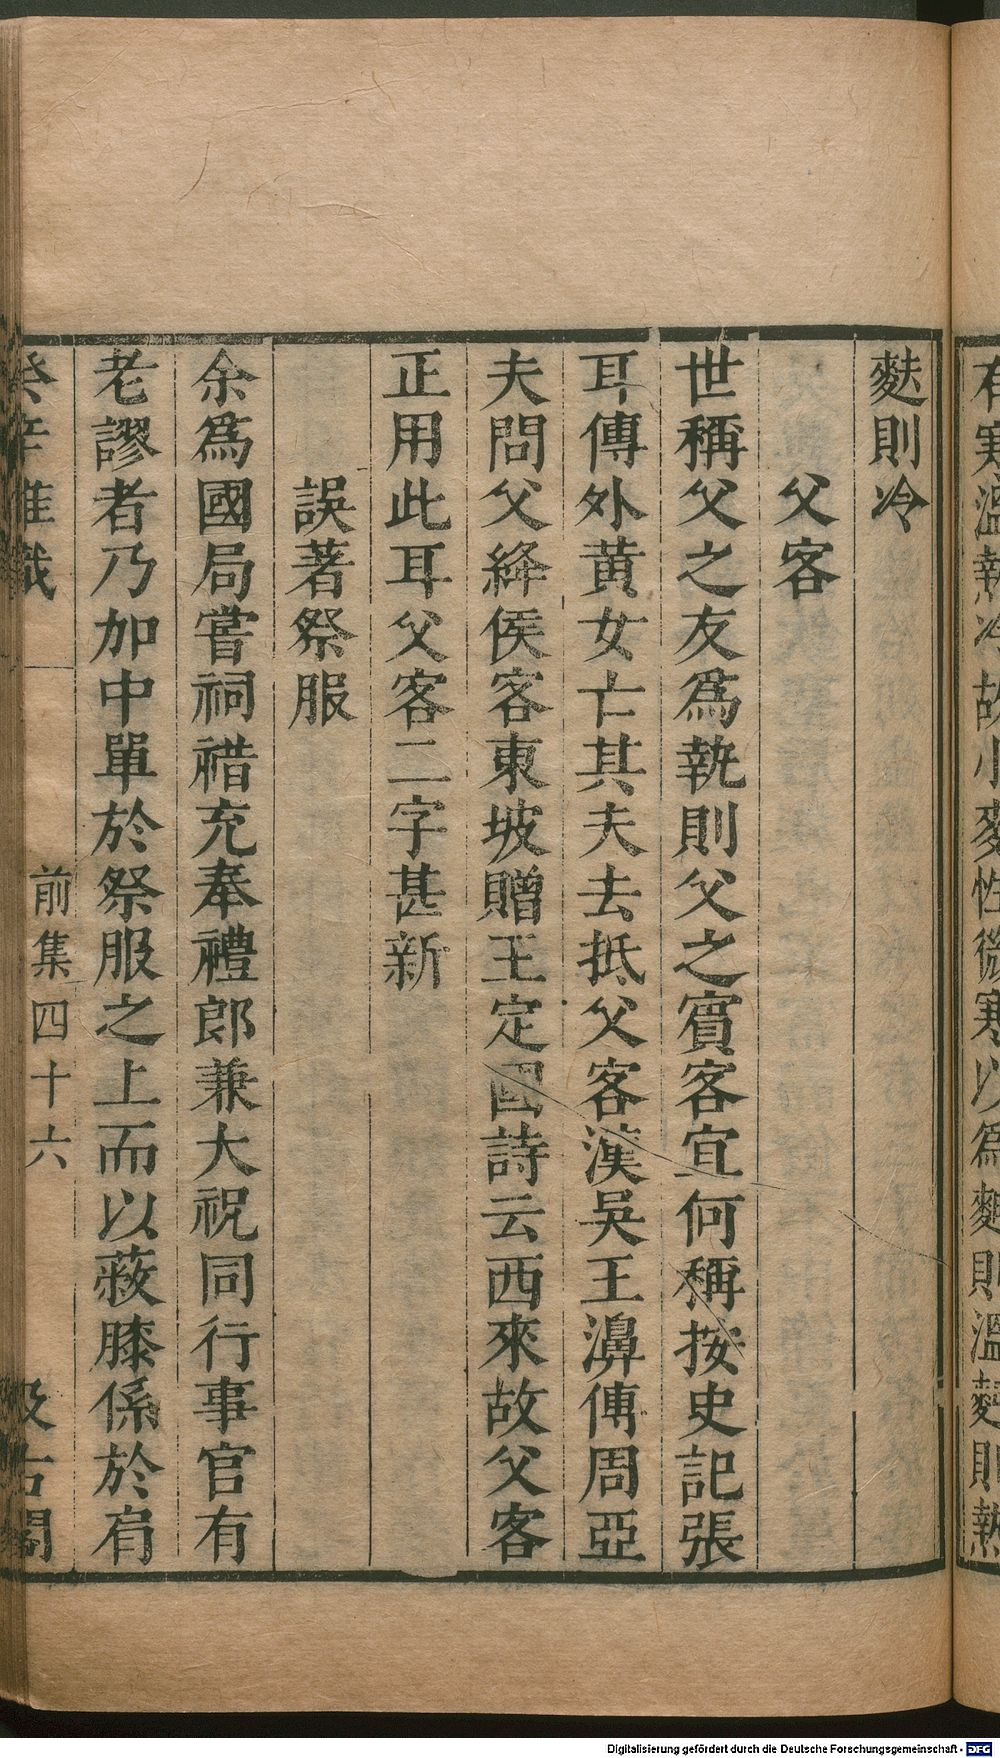 有寒溫熱冷故小麥性微寒以爲麴則溫麫則熱
麩則冷
父客
世稱父之友爲執則父之賓客宜何稱按史記張
耳傳外黃女亡其夫去抵父客漢吳王濞傳周亞
夫問父絳侯客東坡贈王定國詩云西來故父客
正用此耳父客二字甚新
誤著祭服
余爲國局嘗祠禖充奉禮郎兼大祝同行事官有
老謬者乃加中單於祭服之上而以蔽膝係於肩
癸辛雜識
前集四十六
汲古閣
Digitalisierung gefördert durch die Deutsche Forschungsgemeinschaft - DFG